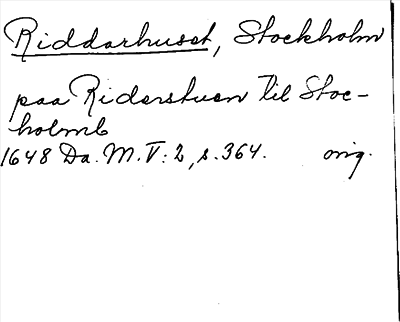 Riddarhuset, Stockholm
paa Riderstuen til Stoc-
holmb
1648 Da. M. V: 2, s. 364. orig.